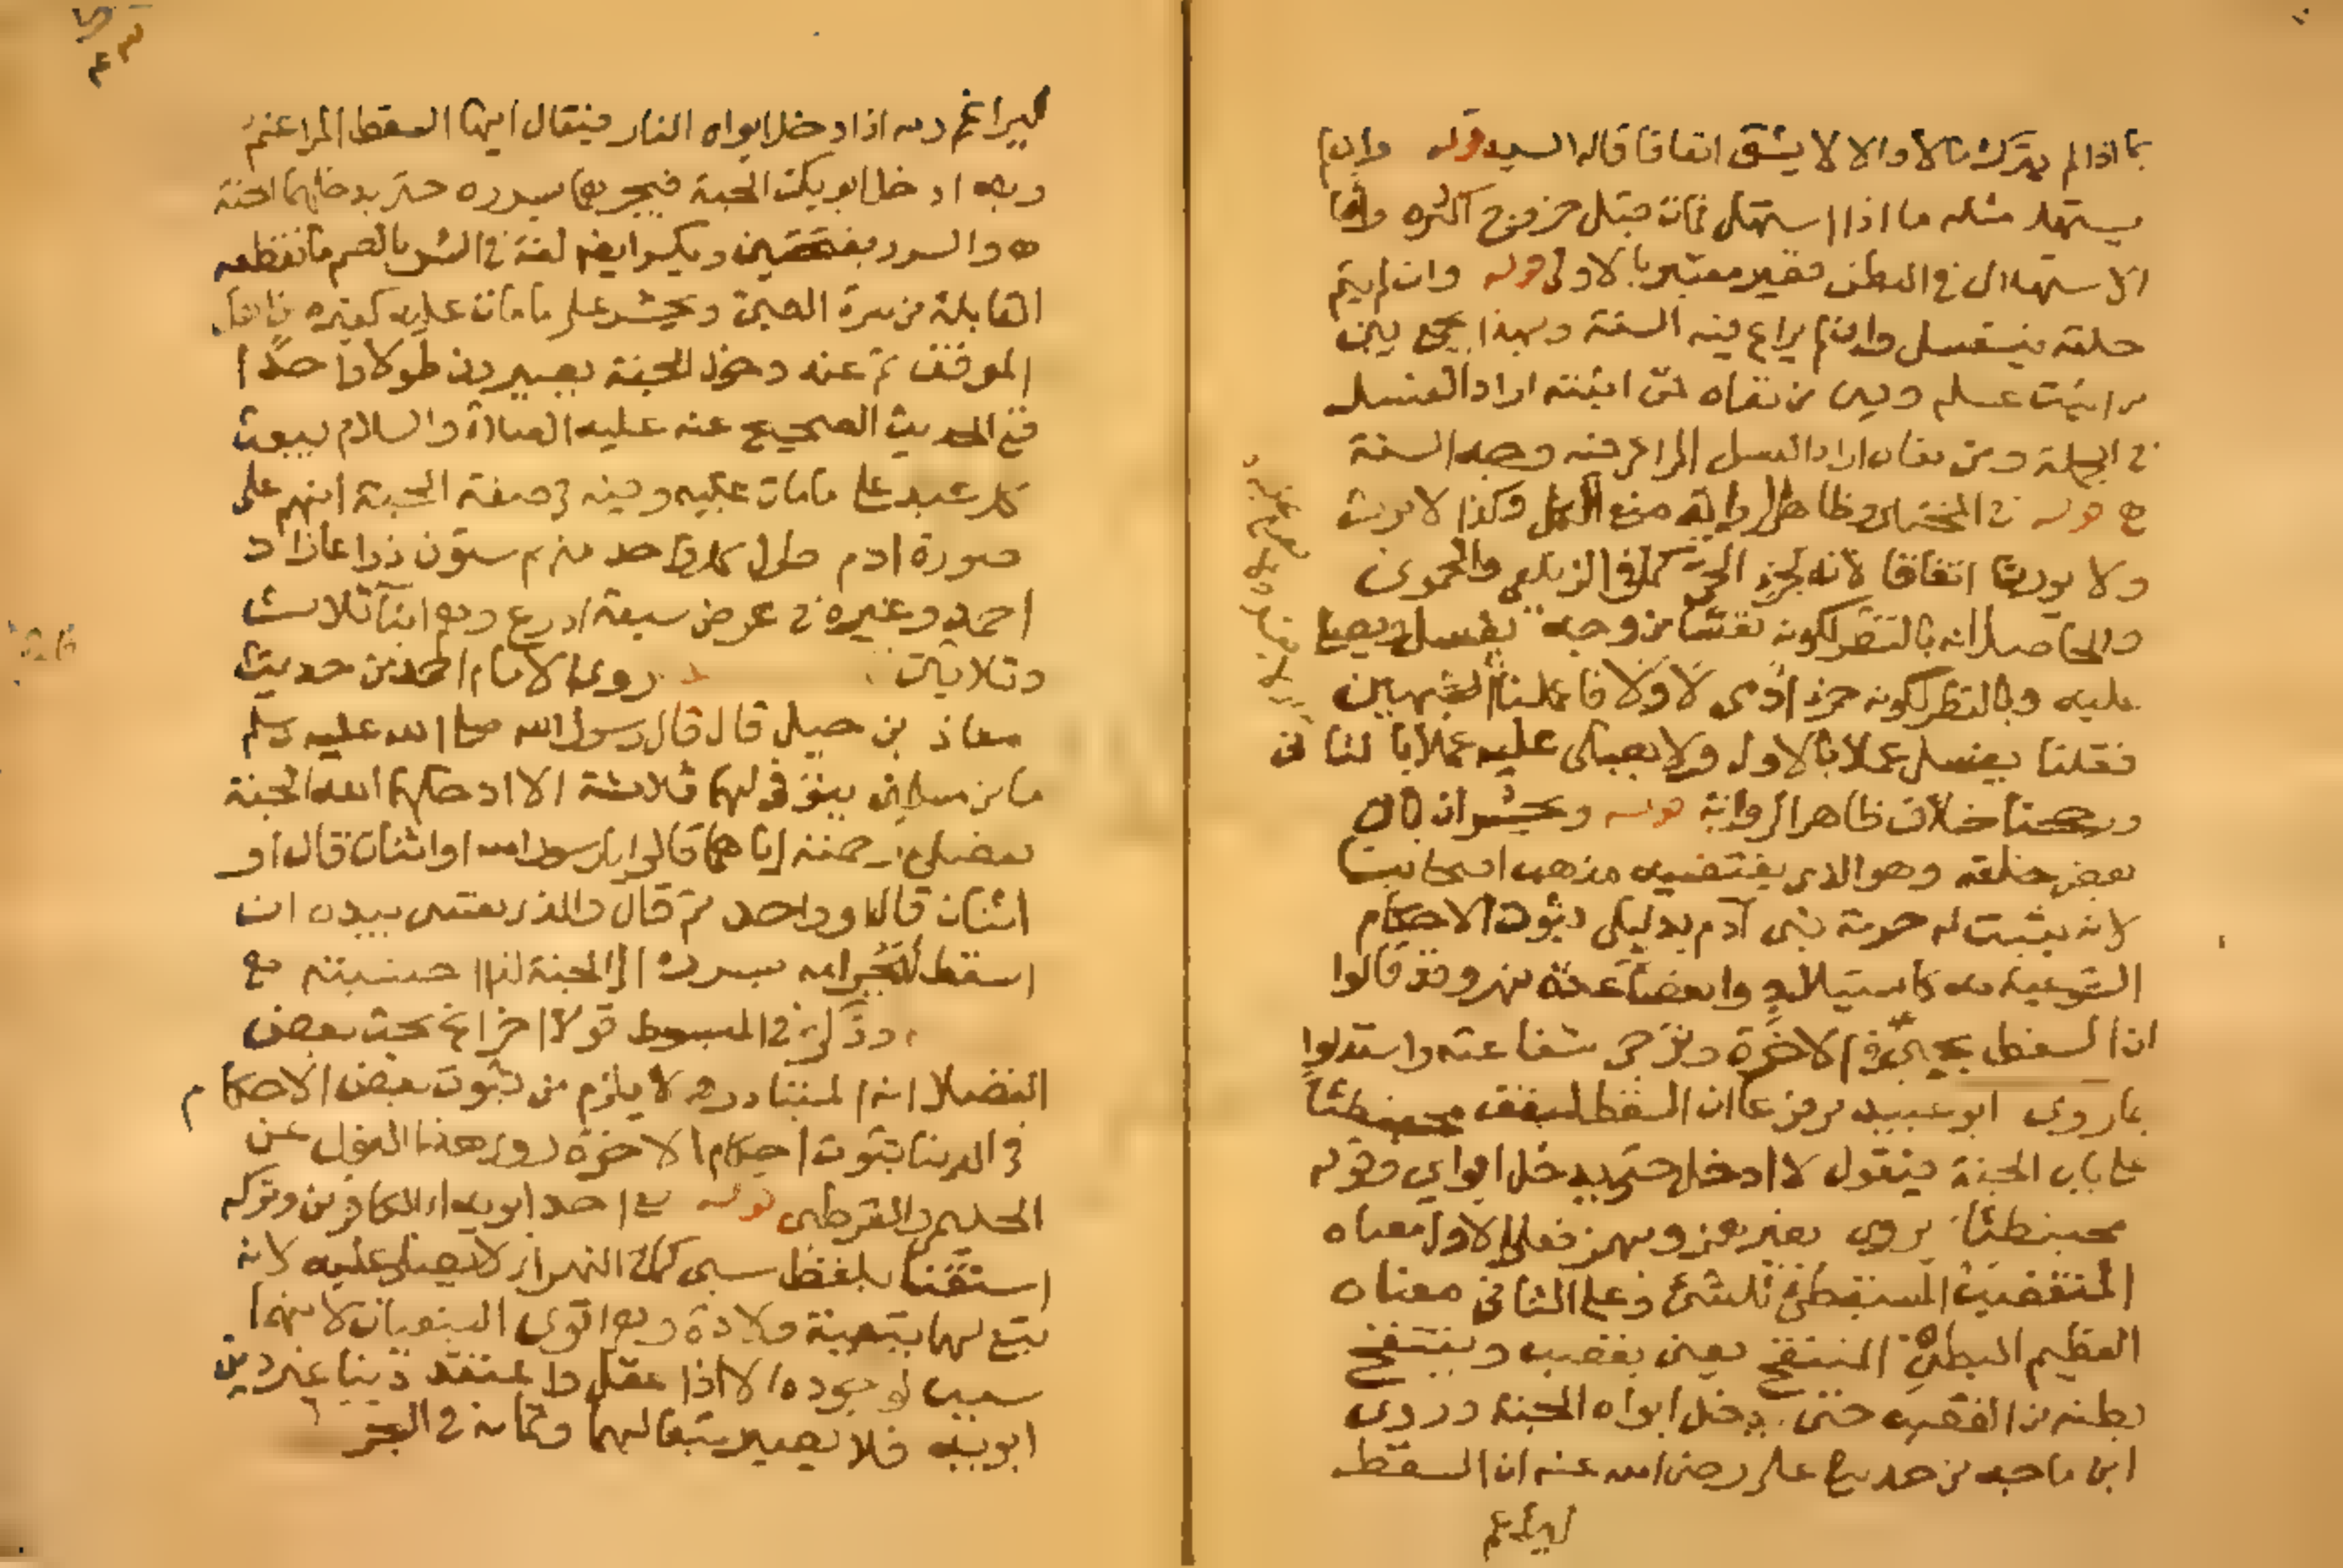 بما اذا لم يترك مالا والا لا يشق اتفاقا قاله السيد قوله وان لم
يستهل مثله ما اذا استهل فمات قبل خروج اكثره واما
الاستهلال في البطن فغير معتبر بالاولى قوله وان لم يتم
خلقه فيغسل وان لم يراع فيه السنة وبهذا يجمع بين
من اثبت غسله وبين من نفاه فمن اثبته اراد الغسل
في الجملة ومن نفاه اراد الغسل المراعى فيه وجه السنة
قوله في المختار وظاهر الرواية منع الكل وكذا لا يرث
ولا يورث اتفاقا لانه كجزء الحي كما في الزيلعي والحموي
والحاصل انه بالنظر لكونه نفسا من وجه يغسل ويصلى
عليه وبالنظر لكونه جزء ادمى لا ولا فاعملنا الشبهين
فقلنا يغسل عملا بالاول ولا يصلى عليه عملا بالثاني
ورجحنا خلاف ظاهر الرواية قوله ويحشر ان بان
بعض خلقه وهو الذي يقتضيه مذهب اصحابنا
لانه يثبت له حرمة بني آدم بدليل ثبوت الاحكام
الشرعية له كاستيلاد وانقضاء عدة نهر وقد قالوا
ان السقط يحيى في الاخرة وترجى شفاعته واستدلوا
بما روى ابو عبيد مرفوعا ان السقط ليقف محبنطئا
على باب الجنة فيقول لا ادخل حتى يدخل ابواي وقوله
محبنطئا يروى بغير همز وبهمز فعلى الاول معناه
المتغضب المستبطئ للشئ وعلى الثاني معناه
العظيم البطن المنتفخ يعني يغضب وينتفخ
بطنه من الغضب حتى يدخل ابواه الجنة وروى
ابن ماجه من حديث على رضى الله عنه ان السقط
ليراغم
ليراغم ربه اذا ادخل ابواه النار فيقال ايها السقط المراغم
ربه ادخل ابويك الجنة فيجرهما بسرره حتى يدخلهما الجنة
اه والسرر بفتحتين وبكسر ايضا لغة في السر بالضم ما تقطعه
القابلة من سرة الصبي ويحشر على ما مات عليه كغيره من اهل
الموقف ثم عند دخول الجنة يصيرون طولا واحدا
ففي الحديث الصحيح عنه عليه الصلاة والسلام يبعث
كل عبد على ما مات عليه وفيه في صفة الجنة انهم على
صورة ادم طول كل واحد منهم ستون ذراعا زاد
احمد وغيره في عرض سبعة اذرع وهم ابناء ثلاث
وثلاثين روى الامام احمد من حديث
معاذ بن جبل قال قال رسول الله صلى الله عليه وسلم
ما من مسلمين يتوفى لهما ثلاثة الا ادخلهما الله الجنة
بفضل رحمته اياهما قالوا يا رسول الله او اثنان قال او
اثنان قالوا او واحد ثم قال والذي نفسى بيده ان
السقط ليجر امه بسرره الى الجنة اذا احتسبته
وذكر في المبسوط قولا اخر بحث بعض
الفضلاء انه المتبادر لا يلزم من ثبوت بعض الاحكام
في الدنيا ثبوت احكام الاخرة وهذا القول عن
الحليمي والقرطبى قوله مع احد ابويه الكافرين وتركه
استغناء بلفظ سبى كما في النهر اى لا يصلى عليه لانه
تبع لهما تبعية ولادة وهي اقوى التبعيات لانهما
سبب لوجوده الا اذا عقل واعتقد دينا غير دين
ابويه فلا يصير تبعا لهما وتمامه في البحر